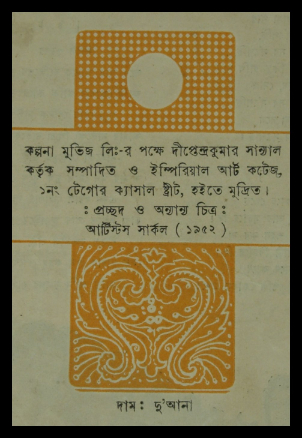 কল্পনা মুভিজ লিঃ-র পক্ষে দীপ্তেন্দ্রকুমার সান্যাল
কর্তৃক সম্পাদিত ও ইম্পিরিয়াল আর্ট কটেজ,
১নং টেগোর ক্যাসাল ষ্ট্রীট, হইতে মুদ্রিত।
: প্রচ্ছদ ও অন্যান্য চিত্র :
আর্টিস্টস সার্কল ( ১৯৫২ )
দাম : দু'আনা